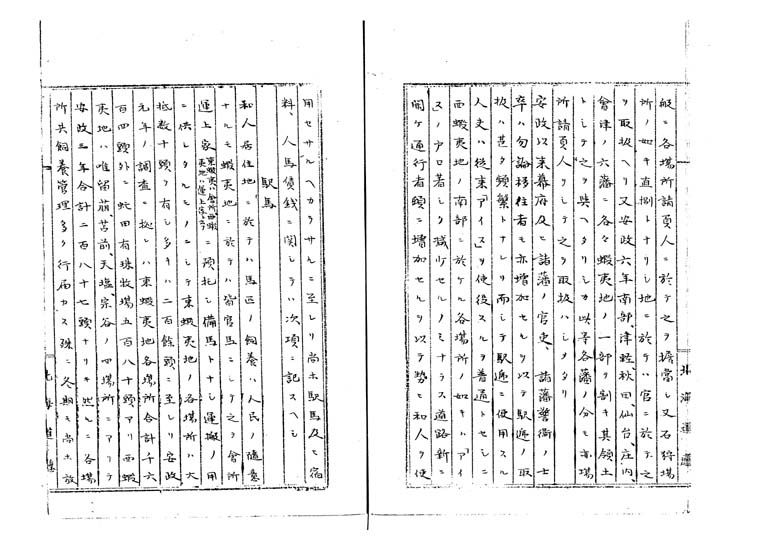 北海道廳
般ニ各場所請負人ニ於テ之ヲ擔當シ又石狩場
所ノ如キ直捌トナリシ地ニ於テハ官ニ於テ之
ヲ取扱ヘリ又安政六年南部、津軽、秋田仙台、庄内、
會津ノ六藩ニ各々蝦夷地ノ一部ヲ割キ其領土
トシテ之ヲ與ヘタリシカ此等各藩ノ分モ亦場
所請負人ヲシテ之ヲ取扱ハシメタリ
安政以来幕府及ヒ諸藩ノ官吏、諸藩警衛ノ士
卒ハ勿論移住者モ亦増加セルヲ以テ駅逓ノ取
扱ハ甚タ頻繁トナレリ而シテ駅逓ニ使用スル
人夫ハ従来アイヌヲ使役スルヲ普通トセシニ
西蝦夷地ノ南部ニ於ケル各場所ノ如キハアイ
ヌノ戸口著シク減少セルノミナラス道路新ニ
開ケ通行者頓ニ増加セルヲ以テ勢ヒ和人ヲ使
用セサルヘカラサルニ至レリ尚ホ駅馬及ヒ宿
料、人馬賃銭ニ関シテハ次項ニ記スヘシ
駅馬
和人居住地ニ於テハ馬匹ノ飼養ハ人民ノ随意
ナルモ蝦夷地ニ於テハ皆官馬ニシテ之ヲ會所
運上家東蝦夷ハ會所西蝦夷地ハ運上家ト云フニ預托シ備馬トナシ運搬ノ用
ニ供シタルモノニシテ東蝦夷地ノ各場所ハ大
抵数十頭ヲ有シ多キハ二百餘頭ニ至レリ安政
元年ノ調査ニ拠レハ東蝦夷地各場所合計千六
百四頭外ニ虻田有珠牧場五百八十頭アリ西蝦
夷地ハ唯留萠、苫前、天塩、宗谷ノ四場所ニアリテ
安政三年合計二百八十七頭ナリキ然レトモ各場
所共飼養管理多ク行届カス殊ニ冬期モ尚ホ放
北海道廳